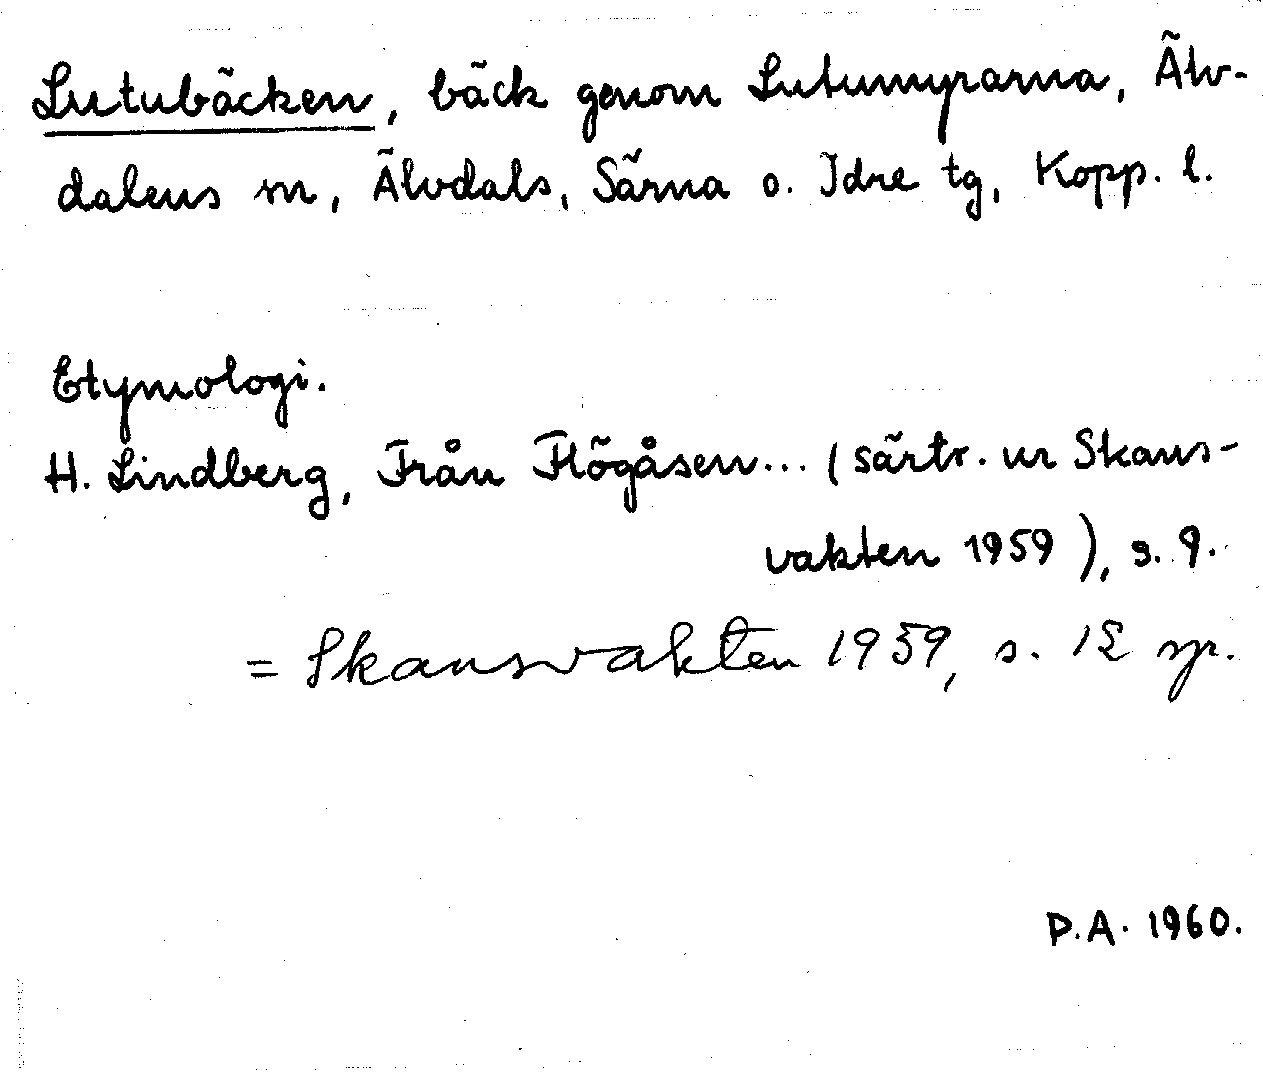 Lutubäcken, bäck genom Lutumyrarna, Älv-
dalens sn, Älvdals, Särna o. Idre tg, Kopp. l.
Etymologi.
H. Lindberg, Från Flögåsen... (särtr. ur Skans-
vakten 1959), s. 9.
= Skansvakten 1959, s. 12 sp.
P.A. 1960.